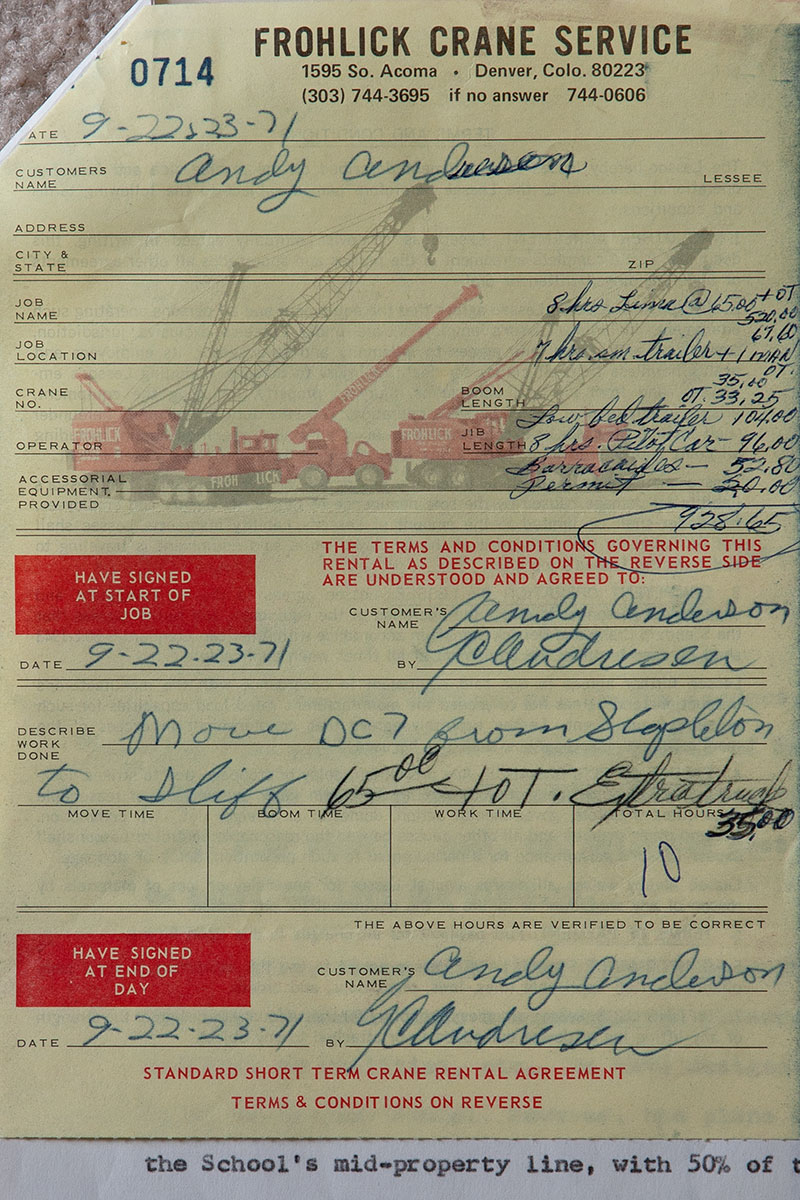 0714
FROHLICK CRANE SERVICE
1595 So. Acoma • Denver, Colo. 80223
(303) 744-3695 if no answer 744-0606
DATE 9-22&23-71
CUSTOMERS NAME Andy Andresen LESSEE
ADDRESS
CITY & STATE ZIP
JOB NAME 8 hrs Lima @ 65.00 + OT
520.00
67.60
JOB LOCATION 7 hrs. sm. trailer + 1 man
OT.
35.00
CRANE NO. BOOM LENGTH OT. 33,25
Low bed trailer 104.00
OPERATOR JIB LENGTH 8 hrs. Pilot Car - 96.00
FROHLICK FROHLICK FROHLICK FROH LICK
ACCESSORIAL EQUIPMENT, PROVIDED Barracaides - 52.80
Permit - 20.00
928.65
THE TERMS AND CONDITIONS GOVERNING THIS
RENTAL AS DESCRIBED ON THE REVERSE SIDE
ARE UNDERSTOOD AND AGREED TO:
HAVE SIGNED
AT START OF
JOB
CUSTOMER'S NAME Andy Anderson
DATE 9-22-23-71 BY Andresen
DESCRIBE WORK DONE Move DC7 from Stapleton
to Iliff 65 00 + OT. Extra truck
35,00
MOVE TIME BOOM TIME WORK TIME TOTAL HOURS
10
THE ABOVE HOURS ARE VERIFIED TO BE CORRECT
HAVE SIGNED
AT END OF
DAY
CUSTOMER'S NAME Andy Anderson
DATE 9-22-23-71 BY Andresen
STANDARD SHORT TERM CRANE RENTAL AGREEMENT
TERMS & CONDITIONS ON REVERSE
the School's mid-property line, with 50% of t